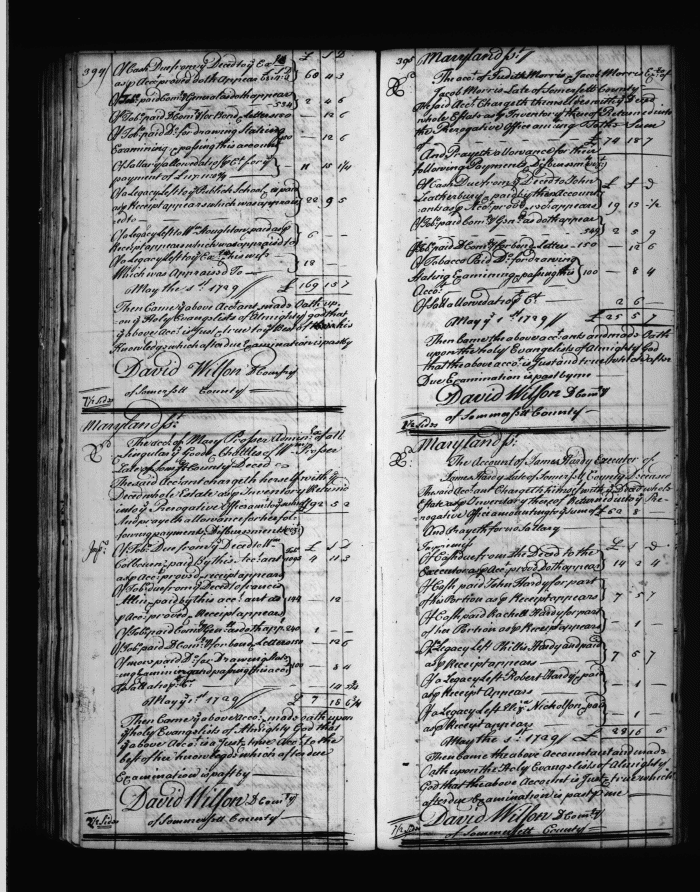 394
Of Cash Due from y.e Deced to y.e Ex.
as p Acc.t proved doth Appear
60 4 3
Of Tob.o paid Com.ry Generall as doth appear
534
2 4 6
Of Tob.o paid D. Com.ry for Bond & Letters
12 6
Of Tob.o paid D.o for drawing Stateing
Examining & passing this account
12 6
Of Sallary allowed also p C.t for y.e
payment of
11 15 1/4
Of a Legacy left to y.e Publick School as p an
p Receipt appears which was appraised
to
22 9 5
Of a Legacy left to W.m Houghton paid as p
Receipt appears which was appraised to
6
Of a Legacy left to y.e Ex.rs his wife
Which was Appraised To
18
May the 1.st 1729
£ 169 15 7
Then Came y.e above Acco.tant & made Oath up-
on y.e Holy Evangelists of Almighty god that
y.e above Acc.t is Just & true to y.e Best of his
Knowledge which after due Examination is past by
David Wilson D Com.ry
of Somersett County
7/2 Sides
Maryland ss.t
The acc.t of Mary Prosser Admin.x of all
Singular y.e Goods & Chattles of W.m Prosser
Late of Som.t County Deced
The said Accountant chargeth herself with y.e
Deced whole Estate as p Inventory Returned
into y.e Prerogative Office amounting unto
92 5 2
And prayeth allowance for her fol-
lowing payments & Disbursments
£ S D
Of Tob.o Due from y.e Deced to W.m
Colbourn & paid by this Accountant
as p Acc.t proved & receipt appears
4 11 3
Of Tob.o due from y.e deced to Francis
Allin & paid by this accountant as
p Acc.t proved & Receipt appears
144
12
Of Tob.o paid Com.ry Gen.ll as doth app.r
240
1
Of Tob.o paid D Com.ry for bond & Letters
12 6
Of more paid D.o for Drawing Stat-
ing Examining and passing this acco.t
100
8 4
To Sallary p C.t
14 3/4
May y.e 1.st 1729
£ 7 18 6 3/4
Then Came y.e above Acco.t & made oath upon
y.e holy Evangelists of Almighty God that
y.e above Acco.t is a Just & true Acco.t to the
best of her knowledge which after due
Examination is past by
David Wilson D Com.ry
of Somersett County
7/2 Sides
395
Maryland ss.t
The acc.t of Judith Morris & Jacob Morris Ex.rs of
Jacob Morris Late of Somersett County
The said Acc.ts Chargeth themselves with y.e Deced
whole Estate as p Inventory thereof Returned into
the Prerogative Office amounting To the Sum
of
£ 74 18 7
And Prayeth allowance for their
following Payments & Disbursments
£ S D
Of Cash Due from y.e Deced to John
Leatherbury & paid by these Account-
ants as p Acc.t proved & rec.t appears
19 13 1/2
Of Tob.o paid Com.ry Gen.ll as doth appear
549
2 5 9
Of Tob.o paid D Com.ry for bond & Letters 150
12 6
Of Tobacco Paid D.o for drawing
Stating Examining & passing this
Acco.t
100
8 4
Of Sallary allowed at p C.t
2 6
May y.e 1.st 1729
£ 25 5 7
Then Came the above accountants and made Oath
upon the holy Evangelists of Almighty God
that the above acco.t is Just and true which after
Due Examination is past by me
David Wilson D Com.ry
of Sommersett County
7/2 Sides
Maryland ss.t
The Account of James Hardy Executor of
James Hardy Late of Somersett County Deceased
The said Accountant Chargeth himself with y.e Deced whole
Estate as p Inventory thereof Returned into y.e Pre-
rogative Office amounting to y.e Sum of
£ 62 8
And Prayeth for no Sallary
Imprimis
£ S D
Of Cash due from the Deced to the
Executor as p Acc.t proved Doth appears
14 2 4
Of Cash paid John Hardy for part
of his Portion as p Receipt appears
7 5 7
Of Cash paid Rachell Hardy for part
of her Portion as p Receipt appears
1
Of a Legacy Left Phillis Hardy and paid
as p Receipt appears
7 5 7
Of a Legacy Left Robert Hardy & paid
as p Receipt Appears
1
Of a Legacy Left Nicholson & paid
as p Receipt appears
1
May the 1.st 1729
Then Came the above Accountant and made
Oath upon the Holy Evangelists of Almighty
God that the above Account is Just & true which
after due Examination is past p me
David Wilson D Com.ry
of Sommersett County
7/2 Sides